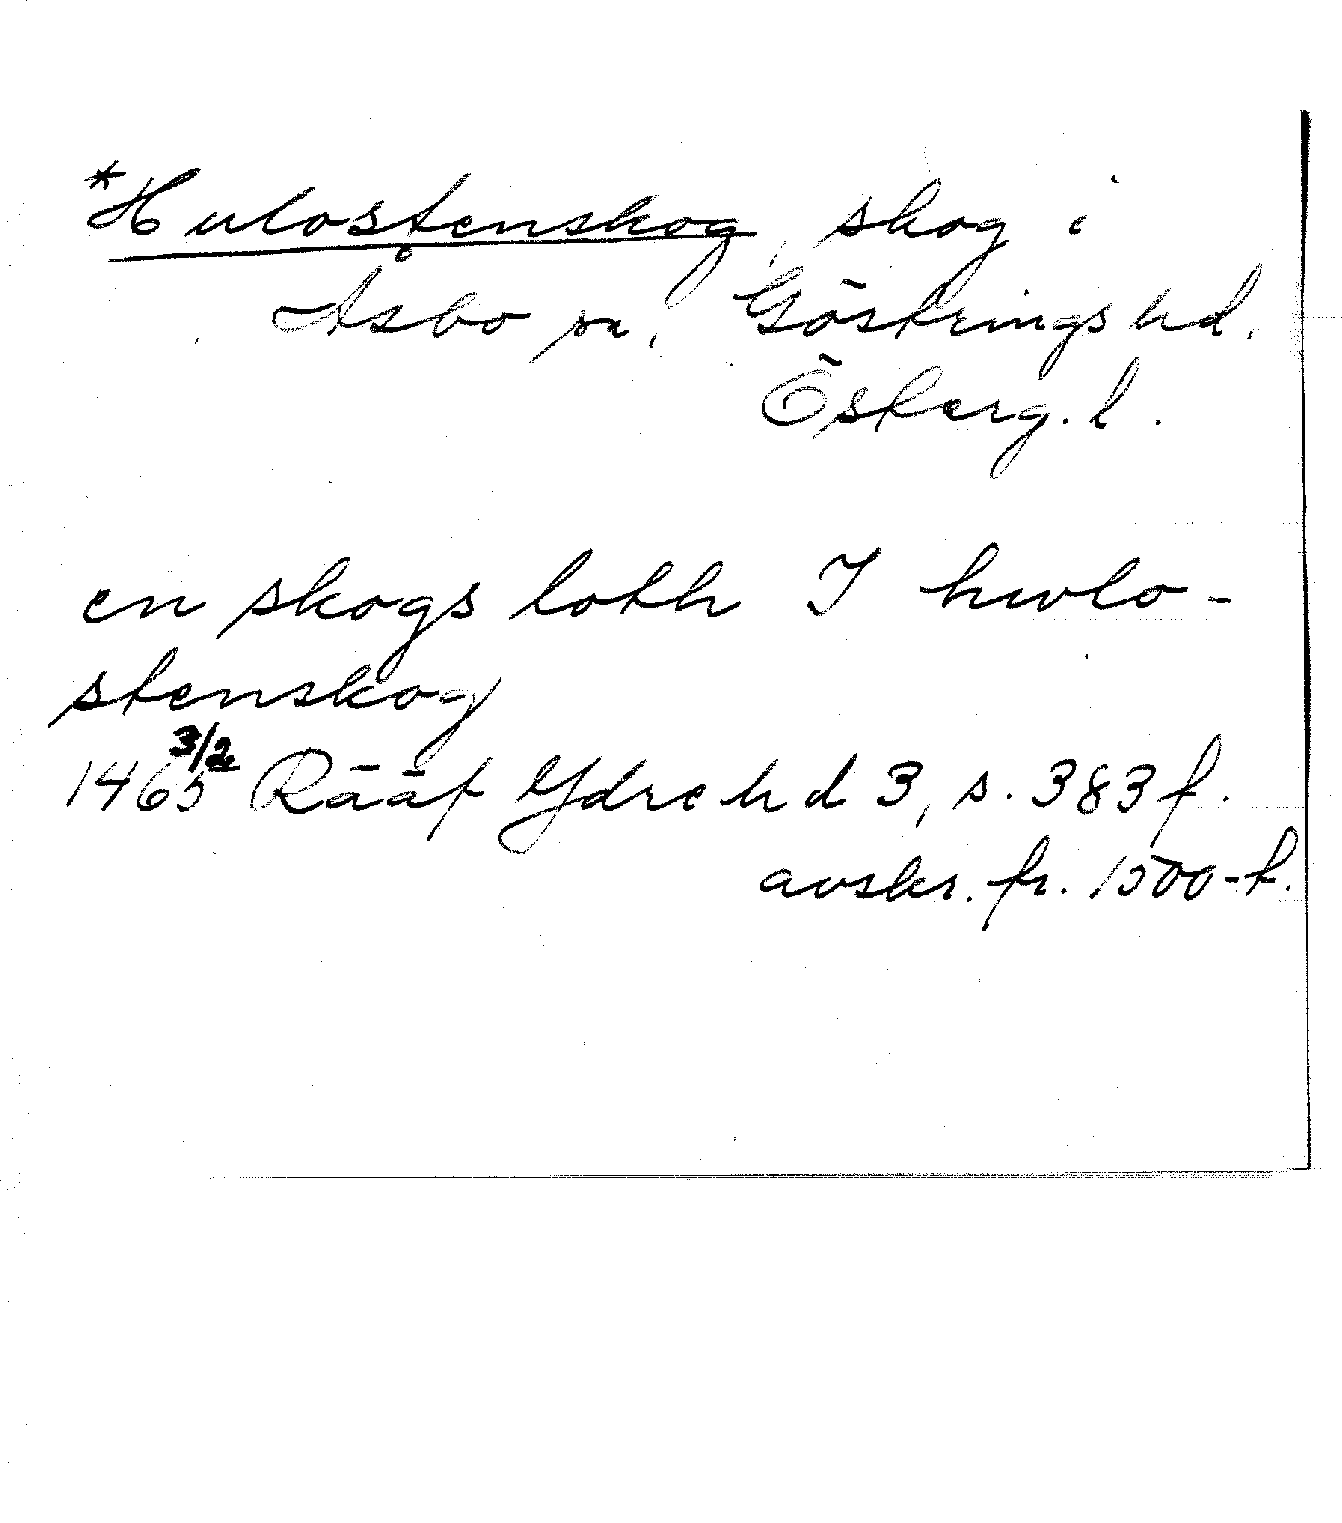 *Hulostenskog, skog i
Åsbo sn, Göstrings hd.
Österg. l.
en skogs loth I hwlo-
stenskog
1465 3/2 Rääf Ydre hd 3, s. 383 f.
avskr. fr. 1500-t.